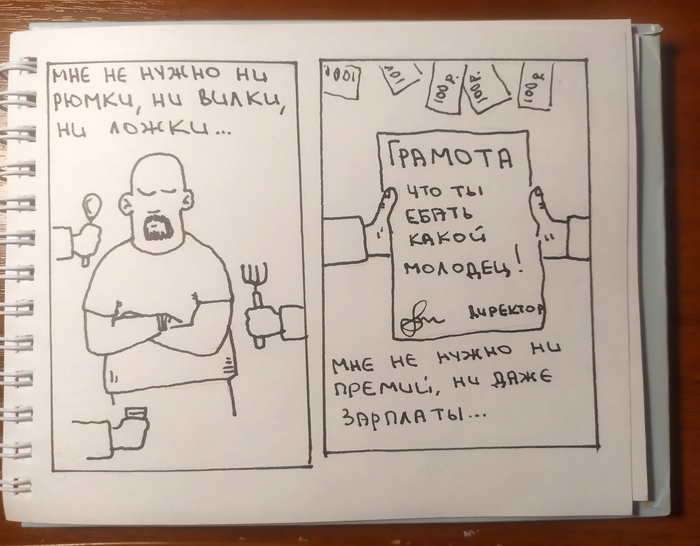 МНЕ НЕ НУЖНО НИ
РЮМКИ, НИ ВИЛКИ,
НИ ЛОЖКИ...
100р.
100р.
100р.
100р.
100р.
ГРАМОТА
ЧТО ТЫ
ЕБАТЬ
КАКОЙ
МОЛОДЕЦ!
ДИРЕКТОР
МНЕ НЕ НУЖНО НИ
ПРЕМИЙ, НИ ДАЖЕ
ЗАРПЛАТЫ...